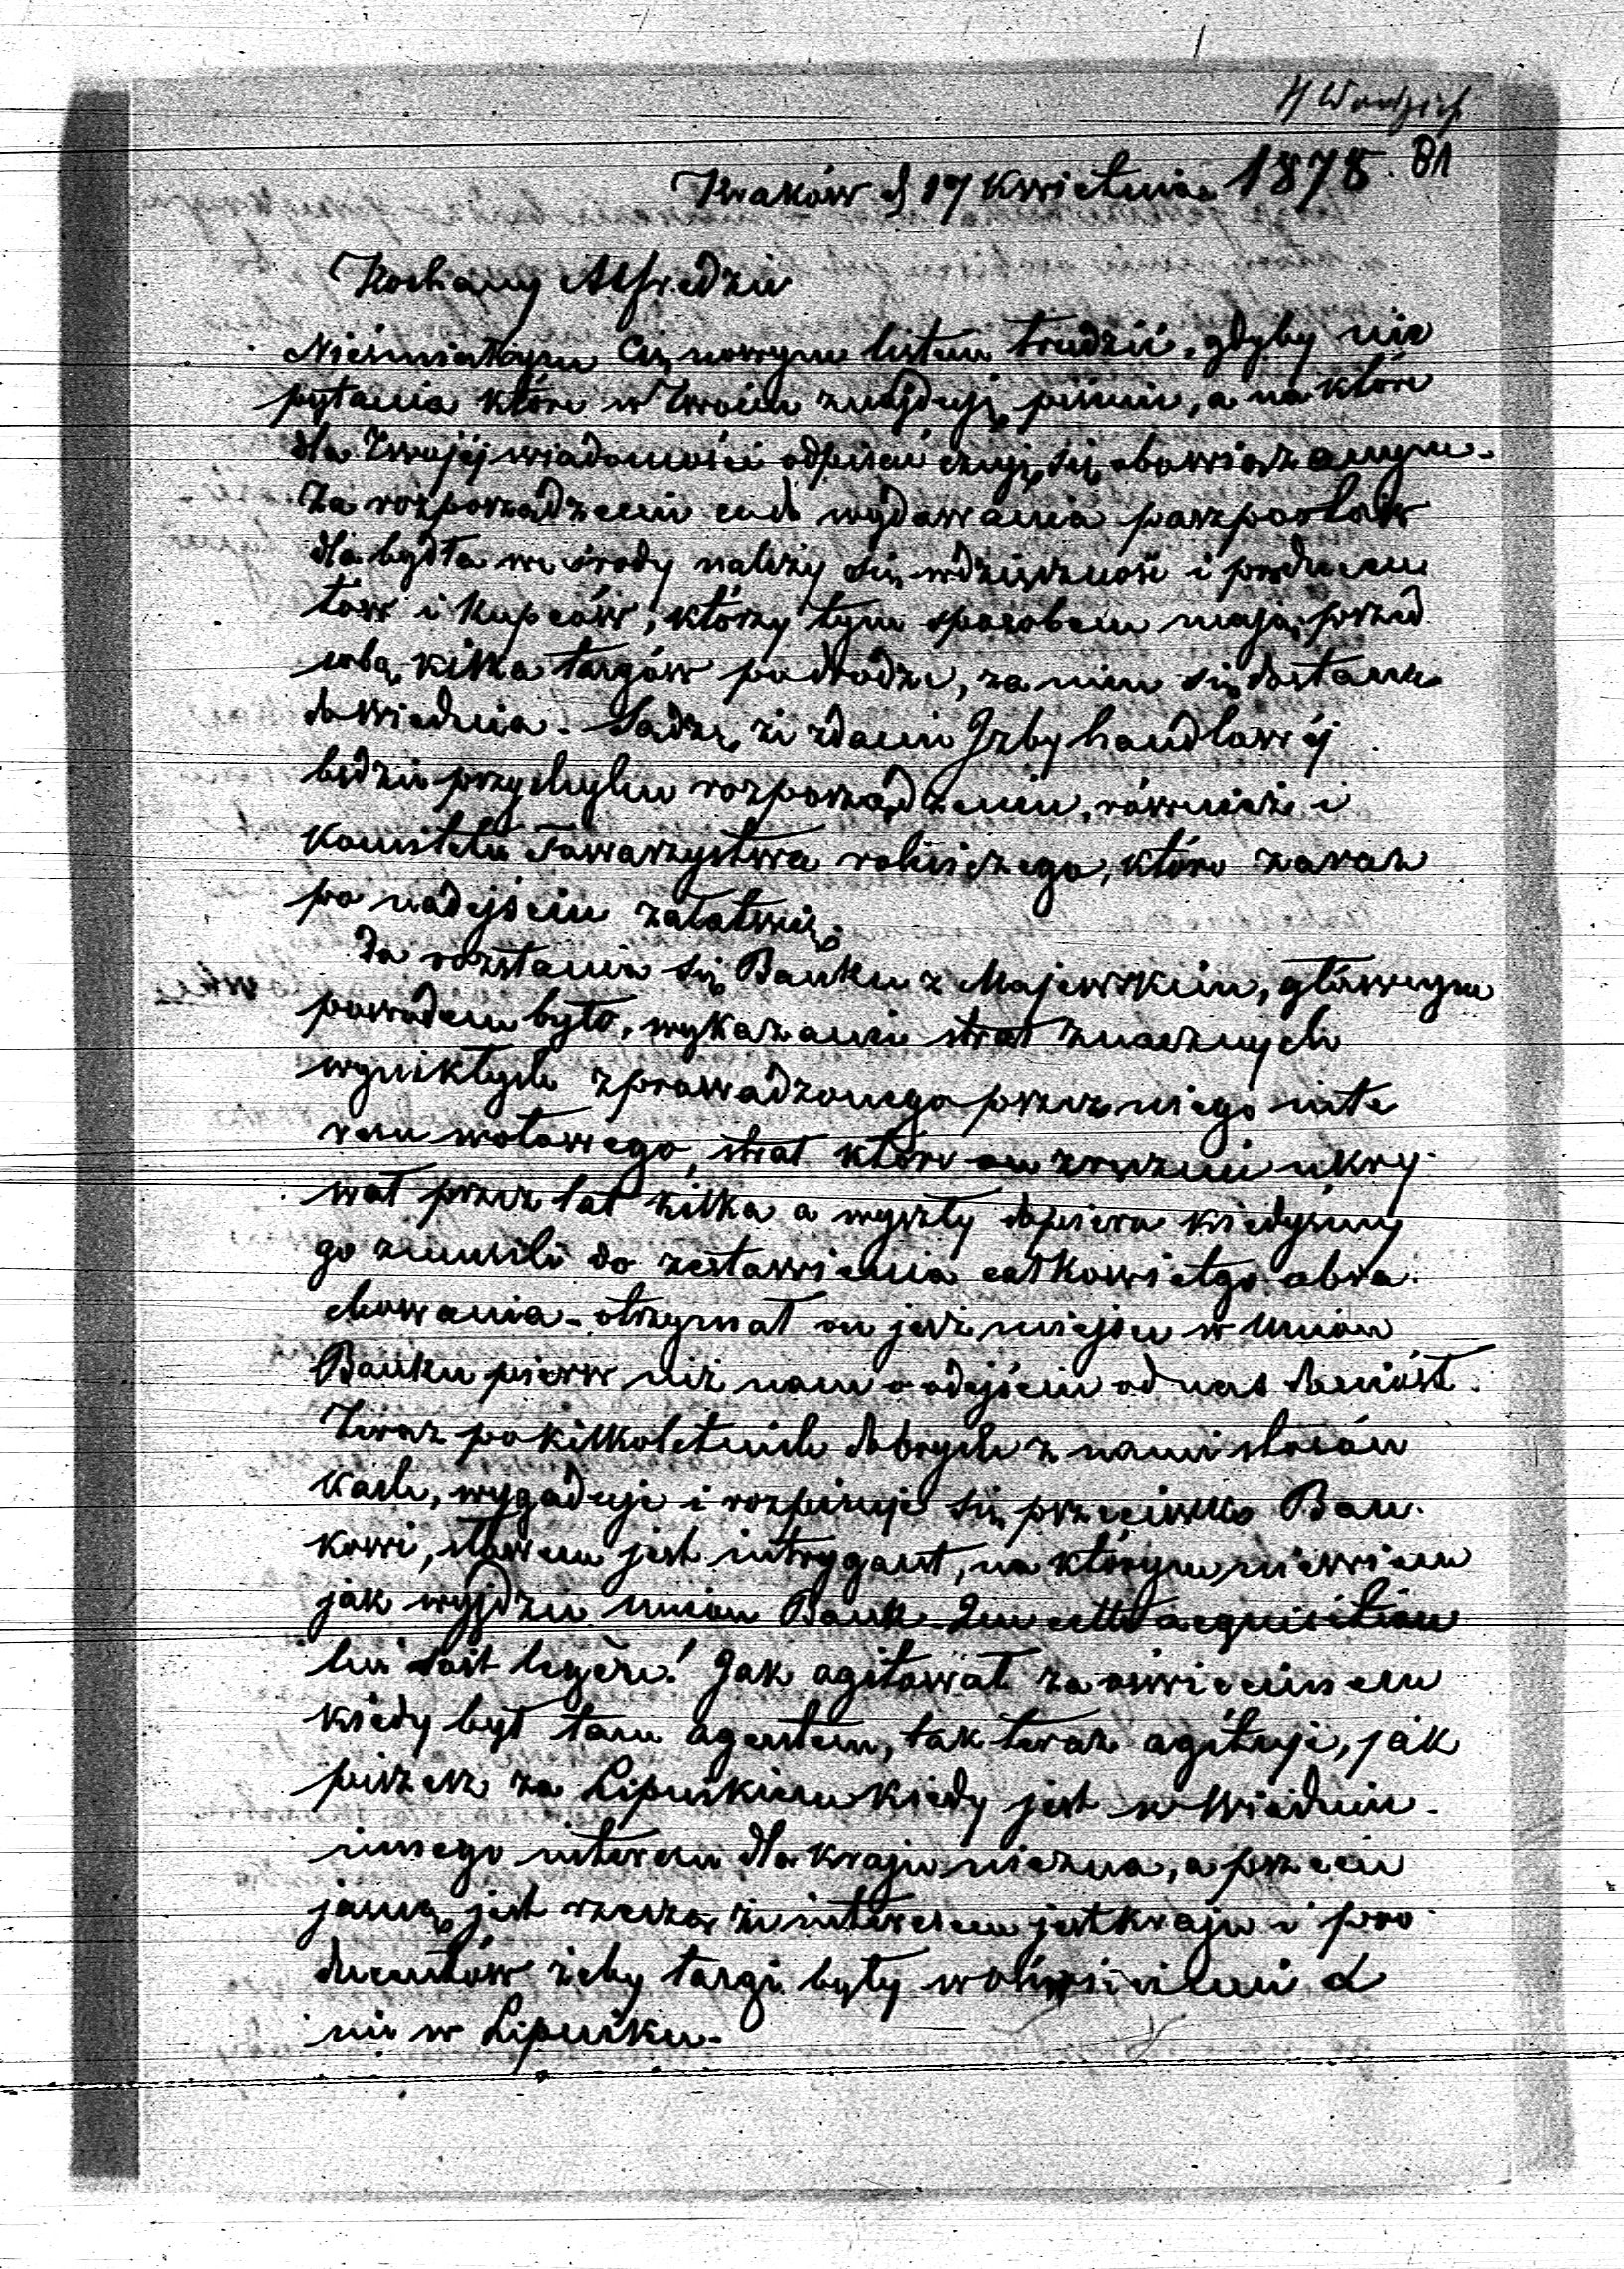 H Wodzick
81
Kraków d 17 Kwietnia 1878.
Kochany Alfredzie
Nieśmiałbym Cię nowym listem trudzić, gdyby nie
pytania które w Twoim znajduję piśmie, a na które
dla Twojéj wiadomości odpisać czuję się obowiązanym.
Za rozporządzenie co do wydawania paszportów
dla bydła we środy należy się wdzięczność i producen
tów i kupców, którzy tym sposobem mają przed
sobą kilka targów po drodze, za nim się dostanie
do Wiednia. Sądzę, że zdanie Izby handlowéj
będzie przychylne rozporządzeniu, również i
Komitetu Towarzystwa rolniczego, które zaraz
po nadejściu załatwię.
Do rozstania się Banku z Majewskim, głównym
powodem było, wykazanie strat znacznych
wynikłych z prowadzonego przez niego inte
resu wołowego, strat które on zręcznie ukry
wał przez lat kilka a wyszły dopiero kiedyśmy
go zmusili do zestawienia całkowitego obra
chowania - otrzymał on już miejsce w Union
Banku pierw niż nam o odejściu od nas doniósł.
Teraz po kilkoletnich dobrych z nami stosun
kach, wygaduje i rozpisuje się przeciwko Ban
kowi, słowem jest intrygant, na którym niewiem
jak wyjdzie Union Bank. Que cette acquisition
lui soit legère! Jak agitował za Oświecimem
kiedy był tam agentem, tak teraz agituje, jak
piszesz za Lipnikiem kiedy jest w Wiedniu.
innego interesu dla kraju niezna, a przecie
jasną jest rzeczą że interesem jest kraju i pro
ducentów żeby targi były w Oświecimie a
nie w Lipniku.